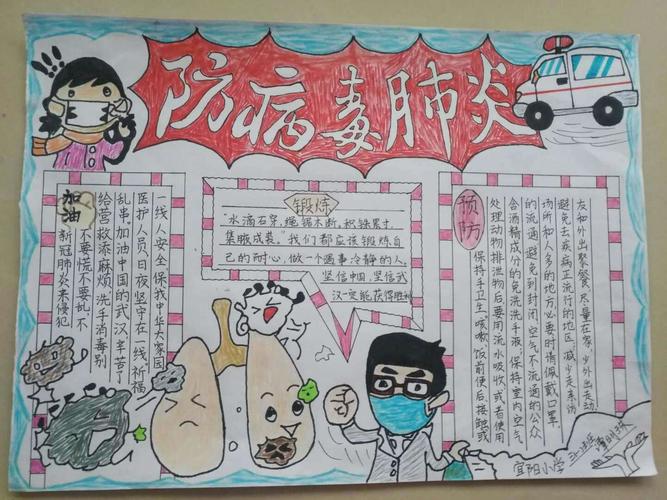 防病毒肺炎
加油
新冠肺炎来侵犯
不要慌不要乱,不
给营救添麻烦,洗手消毒别
乱串。加油中国的武汉辛苦了
医护人员,日夜坚守在一线祈福
一线人安全保我中华大家园
锻炼
“水滴石穿,绳锯木断,积铁累寸,
集腋成裘。”我们都应该锻炼自
己的耐心,做一个遇事冷静的人。
坚信中国,坚信武
汉一定能获得胜利
预防
保持手卫生,咳嗽,饭前便后,接触或
处理动物排泄物后,要用流水吸收,或者使用
含酒精成分的免洗洗手液,保持室内空气
的流通,避免到封闭,空气不流通的公众
场所和人多的地方,必要时请佩戴口罩
避免去疾病正流行的地区,减少走亲访
友和外出聚餐,尽量在家,少外出走动.
宜阳小学